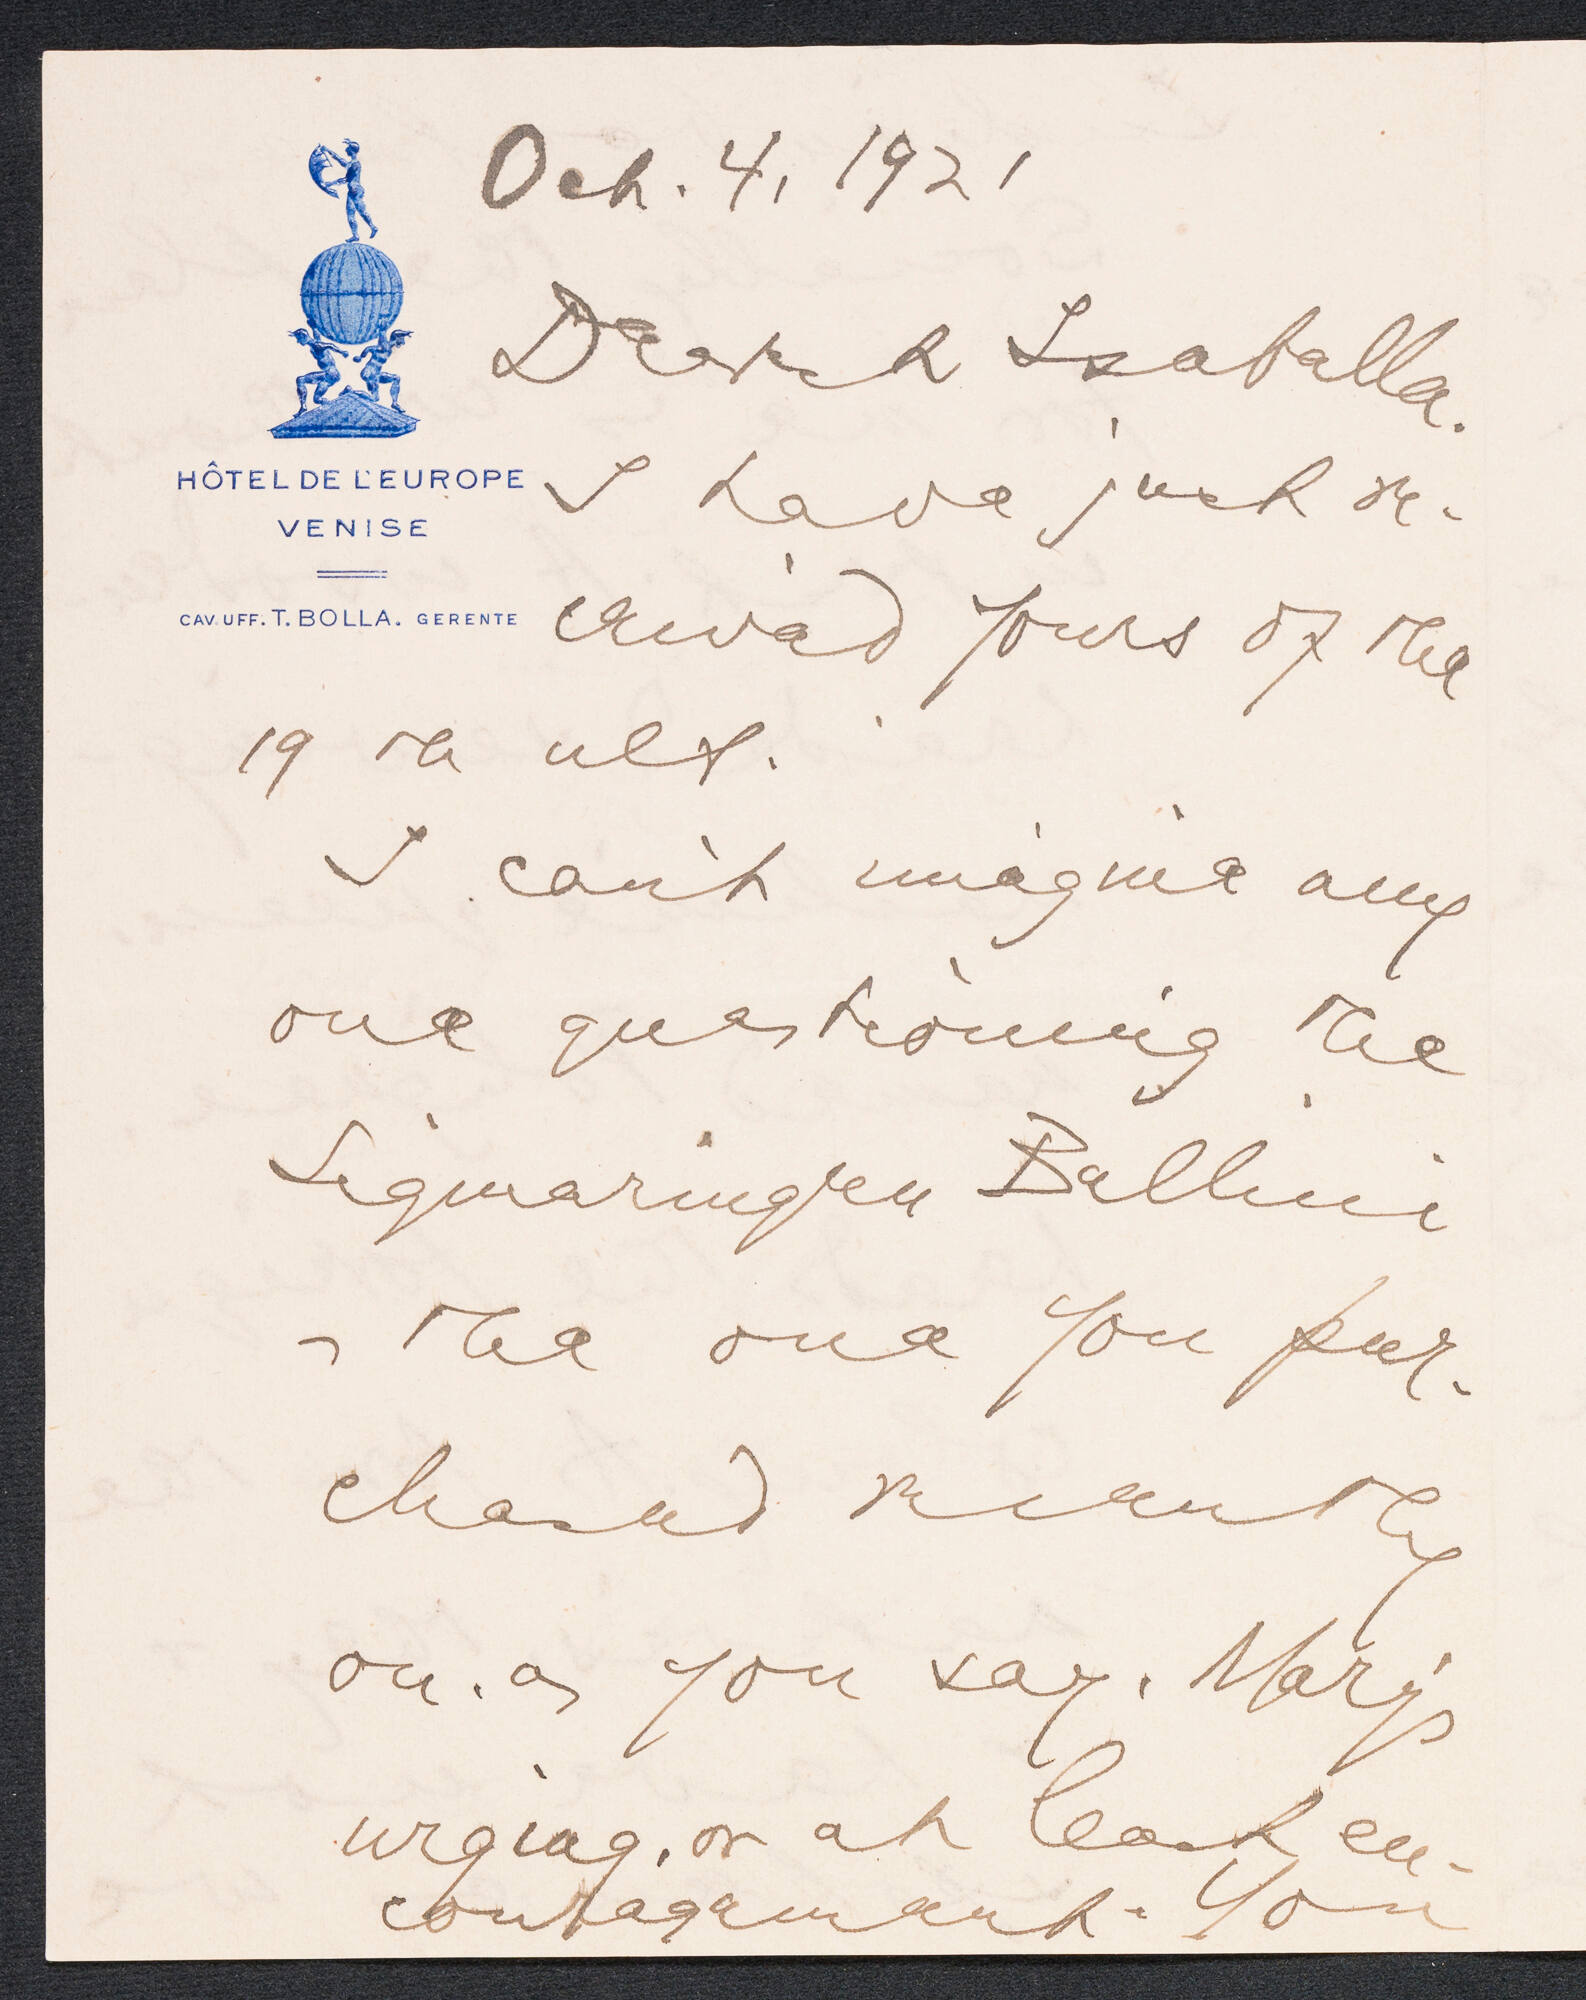 Oct. 4, 1921
Dearest Isabella.
HÔTEL DE L'EUROPE
VENISE
CAV. UFF. T. BOLLA. GERENTE
I have just re-
ceived yours of the
19 th ult.
I can't imagine any
one questioning the
Sigmaringen Bellini
- the one you pur-
chased recently
on. as you say. Mary's
urging, or at least en-
couragement. You